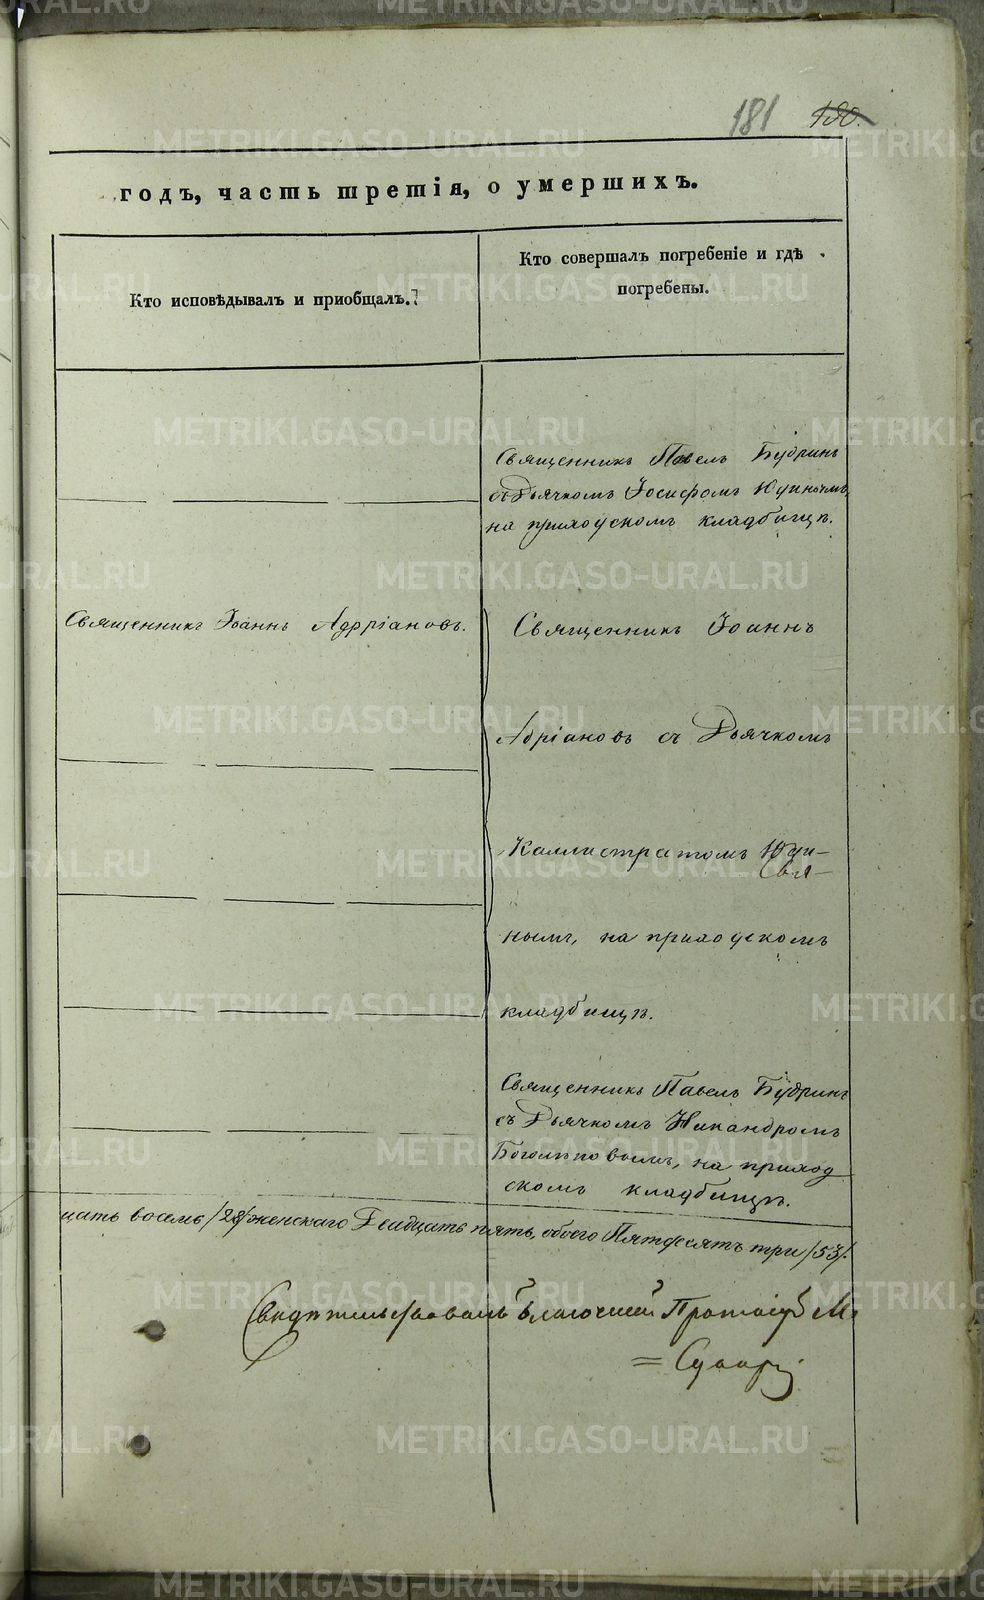 181 180.
годъ, часть третія, о умершихъ.
Кто исповѣдывалъ и приобщалъ.
Кто совершалъ погребеніе и гдѣ
погребены.
Священникъ Павелъ Будринъ
съ Дьячкомъ Іосифомъ
на приходскомъ кладбищѣ.
Священникъ Іоаннъ Адріановъ.
Священникъ Іоаннъ
Адріановъ съ Дьячкомъ
Каллистратомъ
нымъ, на приходскомъ
кладбищѣ.
Священникъ Павелъ Будринъ
съ Дьячкомъ Никандромъ
Боголѣповымъ, на приход
скомъ кладбищѣ.
цать восемь /28/ женскаго Двадцать пять, обоего Пятьдесятъ три /53/.
Свидѣтельствовалъ Благочинный М.
METRIKI.GASO-URAL.RU